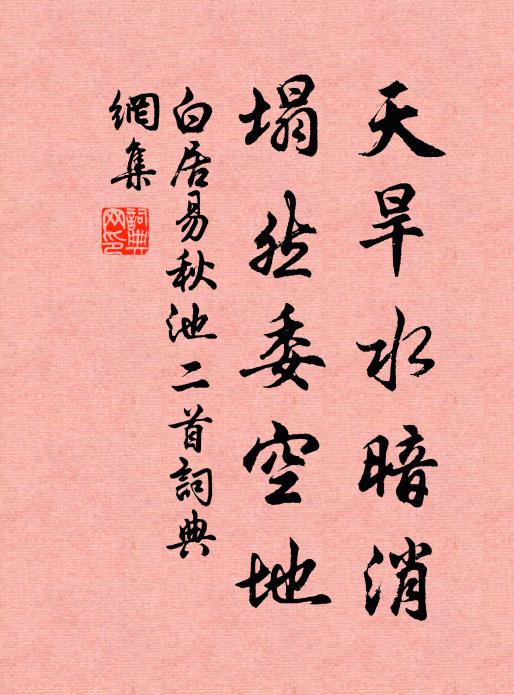 天旱水暗消
塌然委空地
白居易秋池二首詞典
網集
詞典
网印